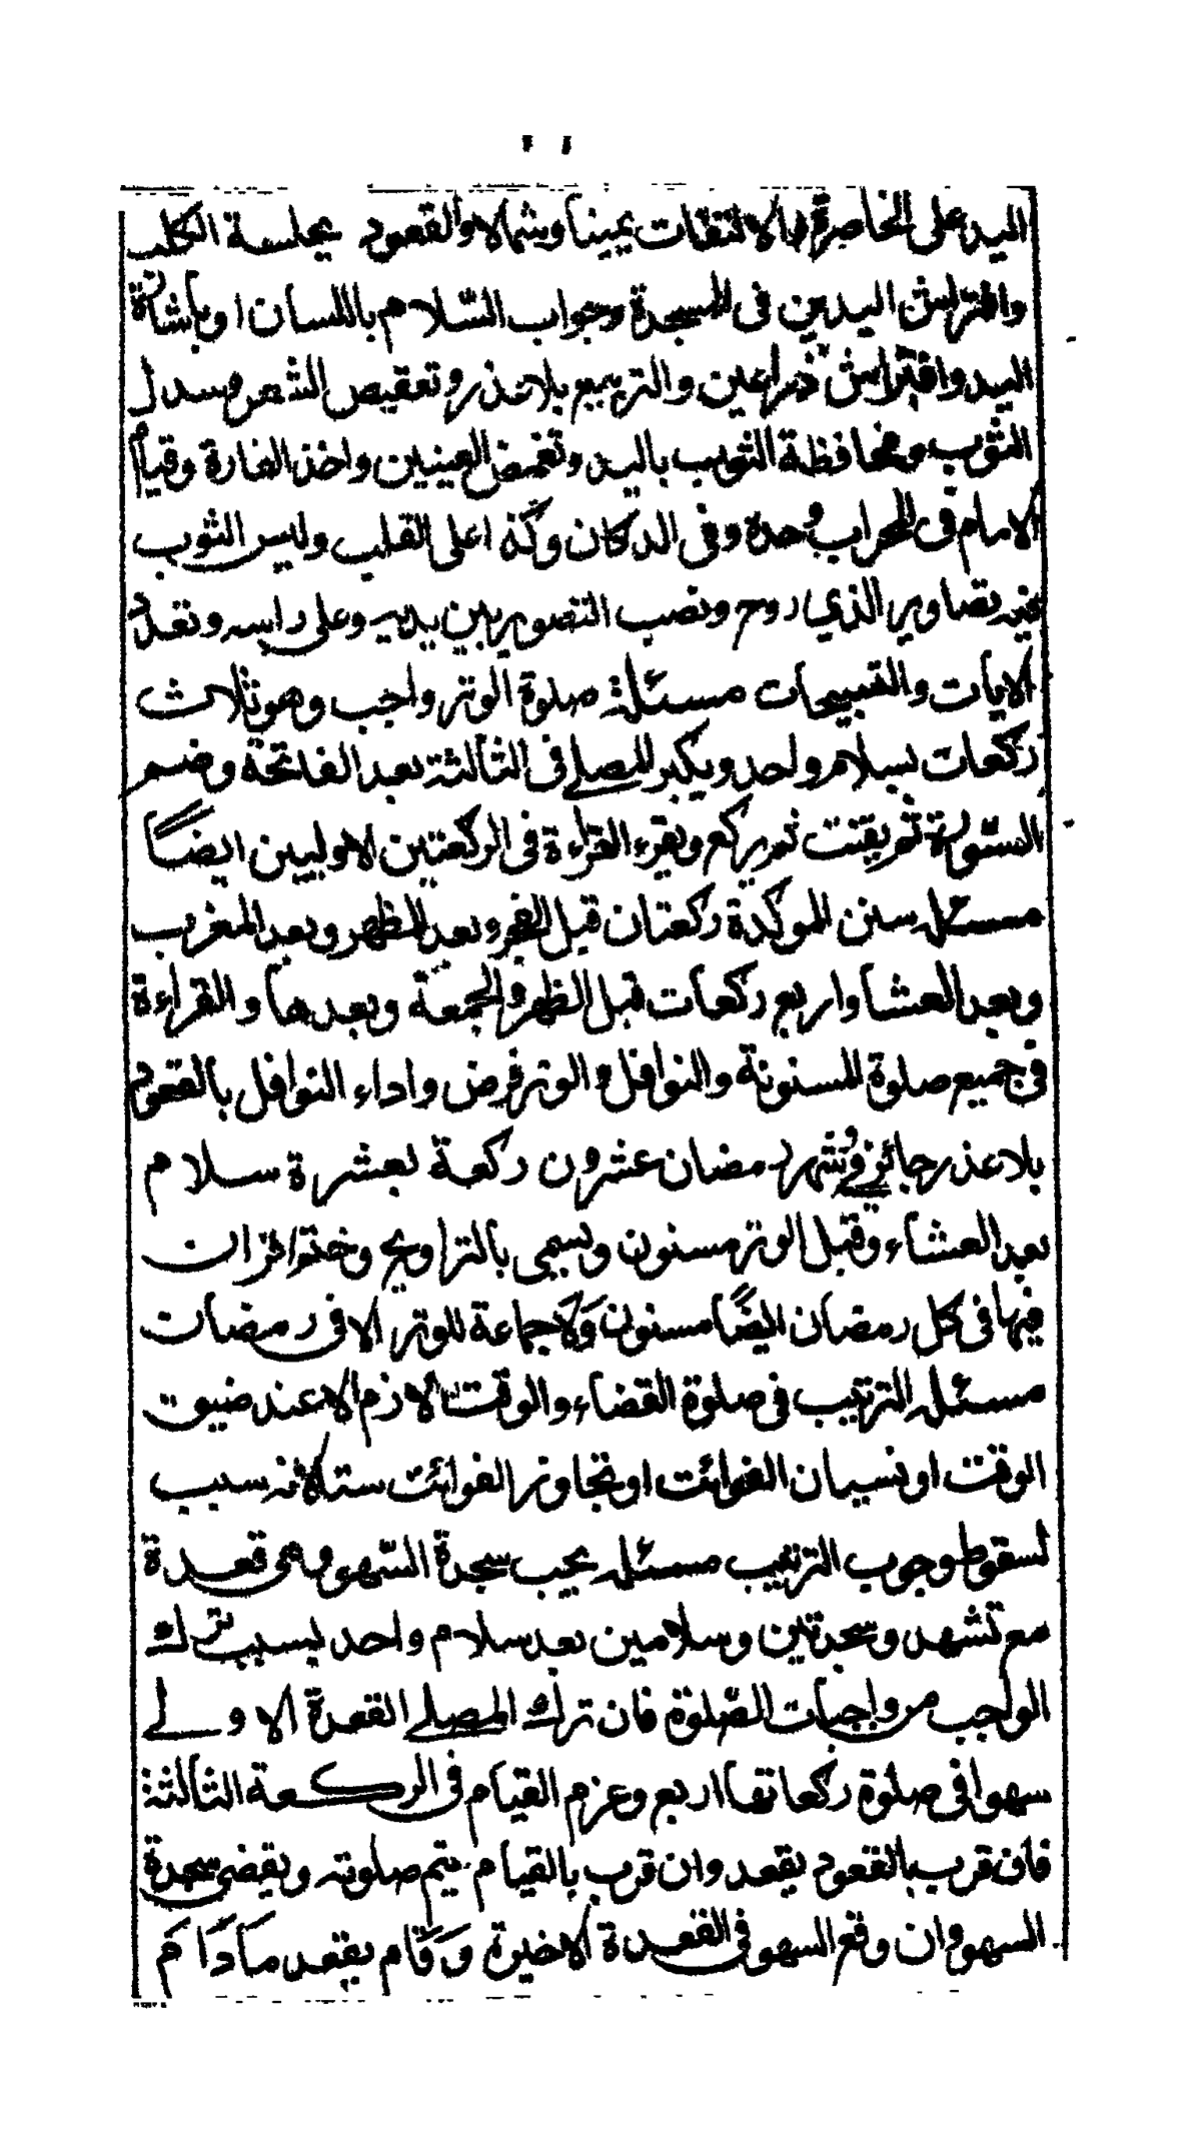 اليد على الخاصرة والالتفات يمينا وشمالا والقعود بجلسة الكلب
وافتراش اليدين فى السجدة وجواب السّلام باللسان او باشارة
اليد وافتراش ذراعين والتربيع بلاعذر وتعقيص الشعر وسدل
الثوب ومحافظة الثوب باليد وتغمض العينين واخذ الفارة وقيام
الامام فى المحراب وحده وفى الدكان وكذا على القلب ولبس الثوب
فيه تصاوير الذي روح ونصب التصوير بين يديه وعلى راسه وتعد
الايات والتسبيحات مسئلة صلوة الوتر واجب وهو ثلاث
ركعات بسلام واحد ويكبر المصلے فى الثالثة بعد الفاتحة وضم
السّورة ثم يقنت ثم يركع ويقرء القراءة فى الركعتين الاوليين ايضًا
مسئله سنن الموكدة ركعتان قبل الفجر وبعد الظهر وبعد المغرب
وبعد العشا واربع ركعات قبل الظهر والجمعة وبعدها والقراءة
فى جميع صلوة المسنونة والنوافل والوتر فرض واداء النوافل بالقعود
بلاعذر جائز وفے شهر رمضان عشرون ركعة بعشرة سلام
بعد العشاء وقبل الوتر مسنون ويسمى بالتراويح وختم القران
فيها فى كل رمضان ايضًا مسنون وَلَا جماعة للوتر الا فى رمضان
مسئله الترتيب فى صلوة القضاء والوقت لازم الا عند ضيق
الوقت او نسيان الفوائت او تجاوز الفوائت ستة لانه سبب
لسقوط وجوب الترتيب مسئله يجب سجدة السّهو وهى قعدة
مع تشهد وسجدتين وسلامين بعد سلام واحد بسبب ترك
الواجب من واجبات الصّلوة فان ترك المصلے القعدة الاولے
سهوا فى صلوة ركعاتها اربع وعزم القيام فى الركعة الثالثة
فان قرب بالقعود يقعد وان قرب بالقيام يتم صلوته ويقضى سجدة
السهو وان وقع السهو فى القعدة الاخيرة وَقَام يقعد مَادَامَ